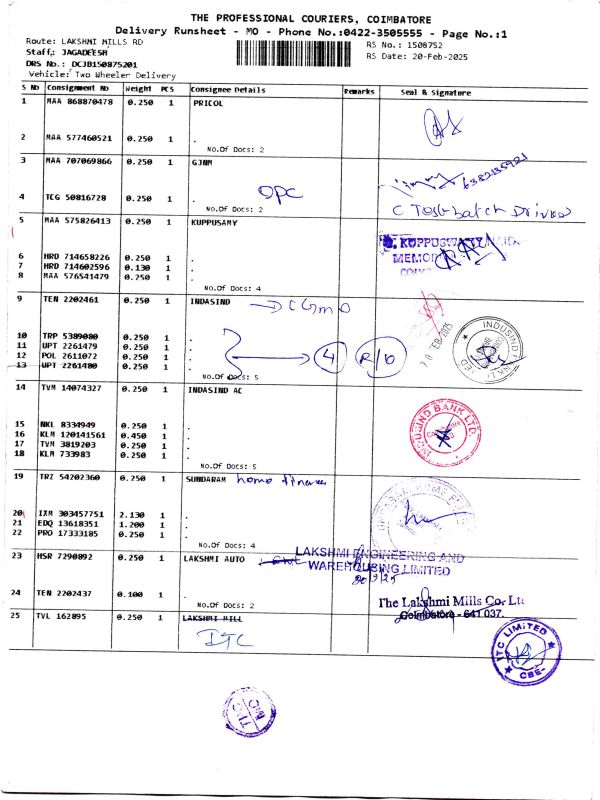 THE PROFESSIONAL COURIERS, COIMBATORE
Delivery Runsheet - MO - Phone No.:0422-3505555 - Page No.:1
Route: LAKSHMI MILLS RD
RS No.: 1508752
Staff.: JAGADEESH
RS Date: 20-Feb-2025
DRS No.: DCJB150875201
Vehicle: Two Wheeler Delivery
S No Consignment No Weight PCS Consignee Details Remarks Seal & Signature
1 MAA 868870478 0.250 1 PRICOL
2 MAA 577460521 0.250 1 .
No.Of Docs: 2
3 MAA 707069866 0.250 1 GJNM
6382135921
4 TCG 50816728 0.250 1 .
OPC
No.Of Docs: 2
5 MAA 575826413 0.250 1 KUPPUSAMY
KUPPUSWAMY
MEMOR
6 HRD 714658226 0.250 1 .
7 HRD 714602596 0.130 1 .
8 MAA 576541479 0.250 1 .
No.Of Docs: 4
9 TEN 2202461 0.250 1 INDASIND
20 FEB 2025
10 TRP 5389080 0.250 1 .
11 UPT 2261479 0.250 1 .
4 R/O
12 POL 2611072 0.250 1 .
13 UPT 2261480 0.250 1 .
No.Of Docs: 5
14 TVM 14074327 0.250 1 INDASIND AC
INDUSIND BANK LTD.
15 NKL 8334949 0.250 1 .
16 KLM 120141561 0.450 1 .
17 TVM 3819203 0.250 1 .
18 KLM 733983 0.250 1 .
No.Of Docs: 5
19 TRZ 54202360 0.250 1 SUNDARAM home finance
20 IXM 303457751 2.130 1 .
21 EDQ 13618351 1.200 1 .
22 PRO 17333185 0.250 1 .
No.Of Docs: 4
23 HSR 7290892 0.250 1 LAKSHMI AUTO
LAKSHMI ENGINEERING AND
WAREHOUSING LIMITED
20/2/25
24 TEN 2202437 0.100 1 .
No.Of Docs: 2
The Lakshmi Mills Co. Lt
Coimbatore - 641 037.
25 TVL 162895 0.250 1 LAKSHMI MILL
ITC
ITC LIMITED
CBE-